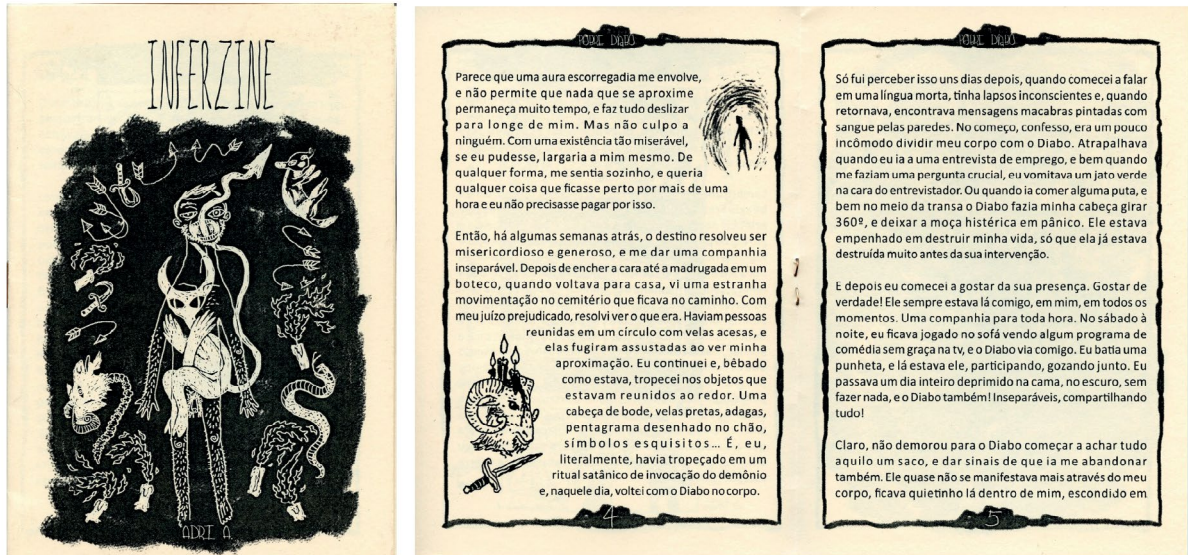 INFERZINE
ADRI A.
POBRE DIABO
Parece que uma aura escorregadia me envolve,
e não permite que nada que se aproxime
permaneça muito tempo, e faz tudo deslizar
para longe de mim. Mas não culpo a
ninguém. Com uma existência tão miserável,
se eu pudesse, largaria a mim mesmo. De
qualquer forma, me sentia sozinho, e queria
qualquer coisa que ficasse perto por mais de uma
hora e eu não precisasse pagar por isso.
Então, há algumas semanas atrás, o destino resolveu ser
misericordioso e generoso, e me dar uma companhia
inseparável. Depois de encher a cara até a madrugada em um
boteco, quando voltava para casa, vi uma estranha
movimentação no cemitério que ficava no caminho. Com
meu juízo prejudicado, resolvi ver o que era. Haviam pessoas
reunidas em um círculo com velas acesas, e
elas fugiram assustadas ao ver minha
aproximação. Eu continuei e, bêbado
como estava, tropecei nos objetos que
estavam reunidos ao redor. Uma
cabeça de bode, velas pretas, adagas,
pentagrama desenhado no chão,
símbolos esquisitos... É, eu,
literalmente, havia tropeçado em um
ritual satânico de invocação do demônio
e, naquele dia, voltei com o Diabo no corpo.
4
POBRE DIABO
Só fui perceber isso uns dias depois, quando comecei a falar
em uma língua morta, tinha lapsos inconscientes e, quando
retornava, encontrava mensagens macabras pintadas com
sangue pelas paredes. No começo, confesso, era um pouco
incômodo dividir meu corpo com o Diabo. Atrapalhava
quando eu ia a uma entrevista de emprego, e bem quando
me faziam uma pergunta crucial, eu vomitava um jato verde
na cara do entrevistador. Ou quando ia comer alguma puta, e
bem no meio da transa o Diabo fazia minha cabeça girar
360º, e deixar a moça histérica em pânico. Ele estava
empenhado em destruir minha vida, só que ela já estava
destruída muito antes da sua intervenção.
E depois eu comecei a gostar da sua presença. Gostar de
verdade! Ele sempre estava lá comigo, em mim, em todos os
momentos. Uma companhia para toda hora. No sábado à
noite, eu ficava jogado no sofá vendo algum programa de
comédia sem graça na tv, e o Diabo via comigo. Eu batia uma
punheta, e lá estava ele, participando, gozando junto. Eu
passava um dia inteiro deprimido na cama, no escuro, sem
fazer nada, e o Diabo também! Inseparáveis, compartilhando
tudo!
Claro, não demorou para o Diabo começar a achar tudo
aquilo um saco, e dar sinais de que ia me abandonar
também. Ele quase não se manifestava mais através do meu
corpo, ficava quietinho lá dentro de mim, escondido em
5